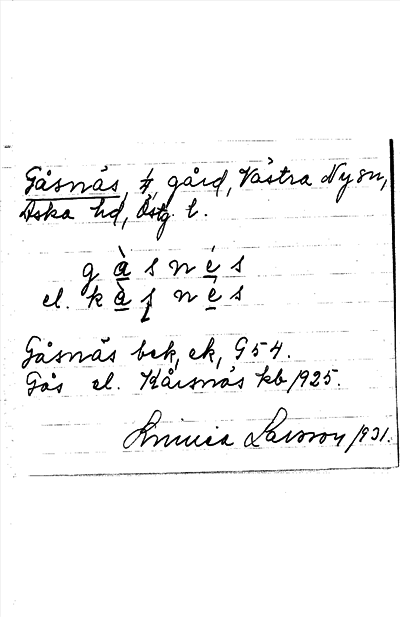 Gåsnäs, 1/4, gård, Västra Ny sn,
Aska hd, Östg. l.
g à s n é s
el. k à s n é s
Gåsnäs bek, ek, G54.
Gås el. Kårsnäs kb 1925.
Linnéa Larsson 1931.